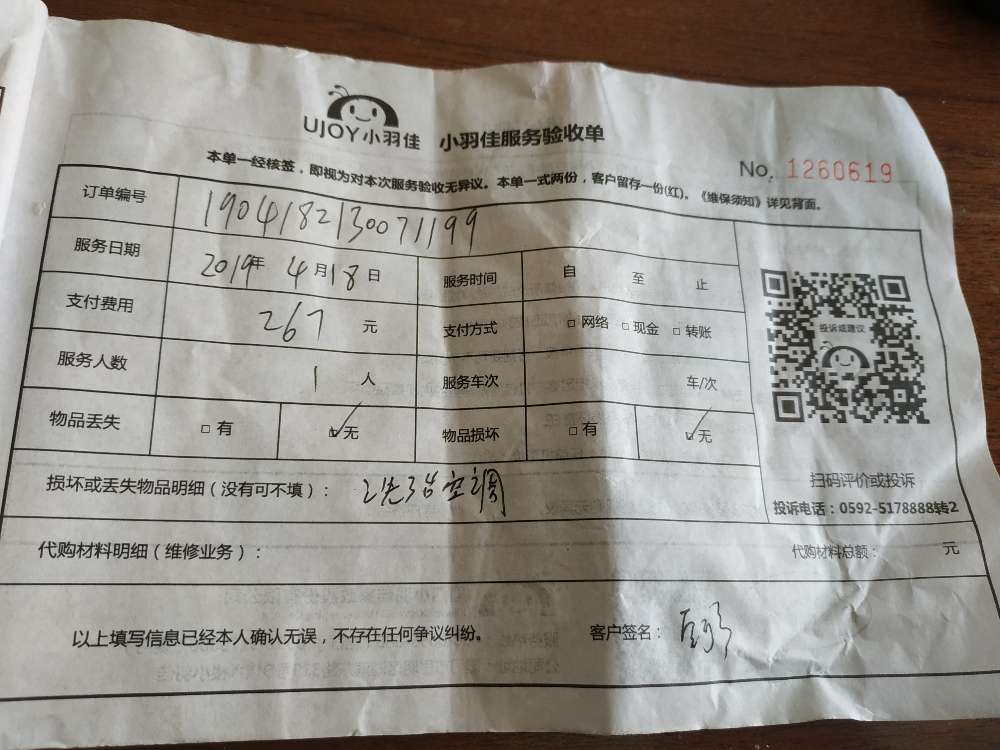 UJOY小羽佳 小羽佳服务验收单
No. 1260619
本单一经核签，即视为对本次服务验收无异议。本单一式两份，客户留存一份(红)。《维保须知》详见背面。
订单编号 190418213007119​9
服务日期 2019年 4月18日 服务时间 自 至 止
支付费用 267 元 支付方式 □网络 □现金 □转账
投诉或建议
服务人数 1 人 服务车次 车/次
物品丢失 □有 ☑无 物品损坏 □有 ☑无
扫码评价或投诉
损坏或丢失物品明细（没有可不填）： 清洗3台空调
投诉电话：0592-5178888转2
代购材料明细（维修业务）： 代购材料总额： 元
以上填写信息已经本人确认无误，不存在任何争议纠纷。 客户签名：